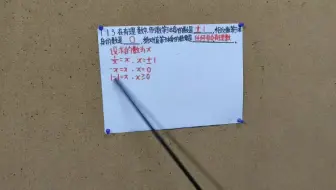 13 在有理数中,倒数等于本身的数是 ±1 ,相反数等于本
身的数是 0 ,绝对值等于本身的数是
设未知数为x
=x , x=±1
-x=x , x=0
=x , x≥0